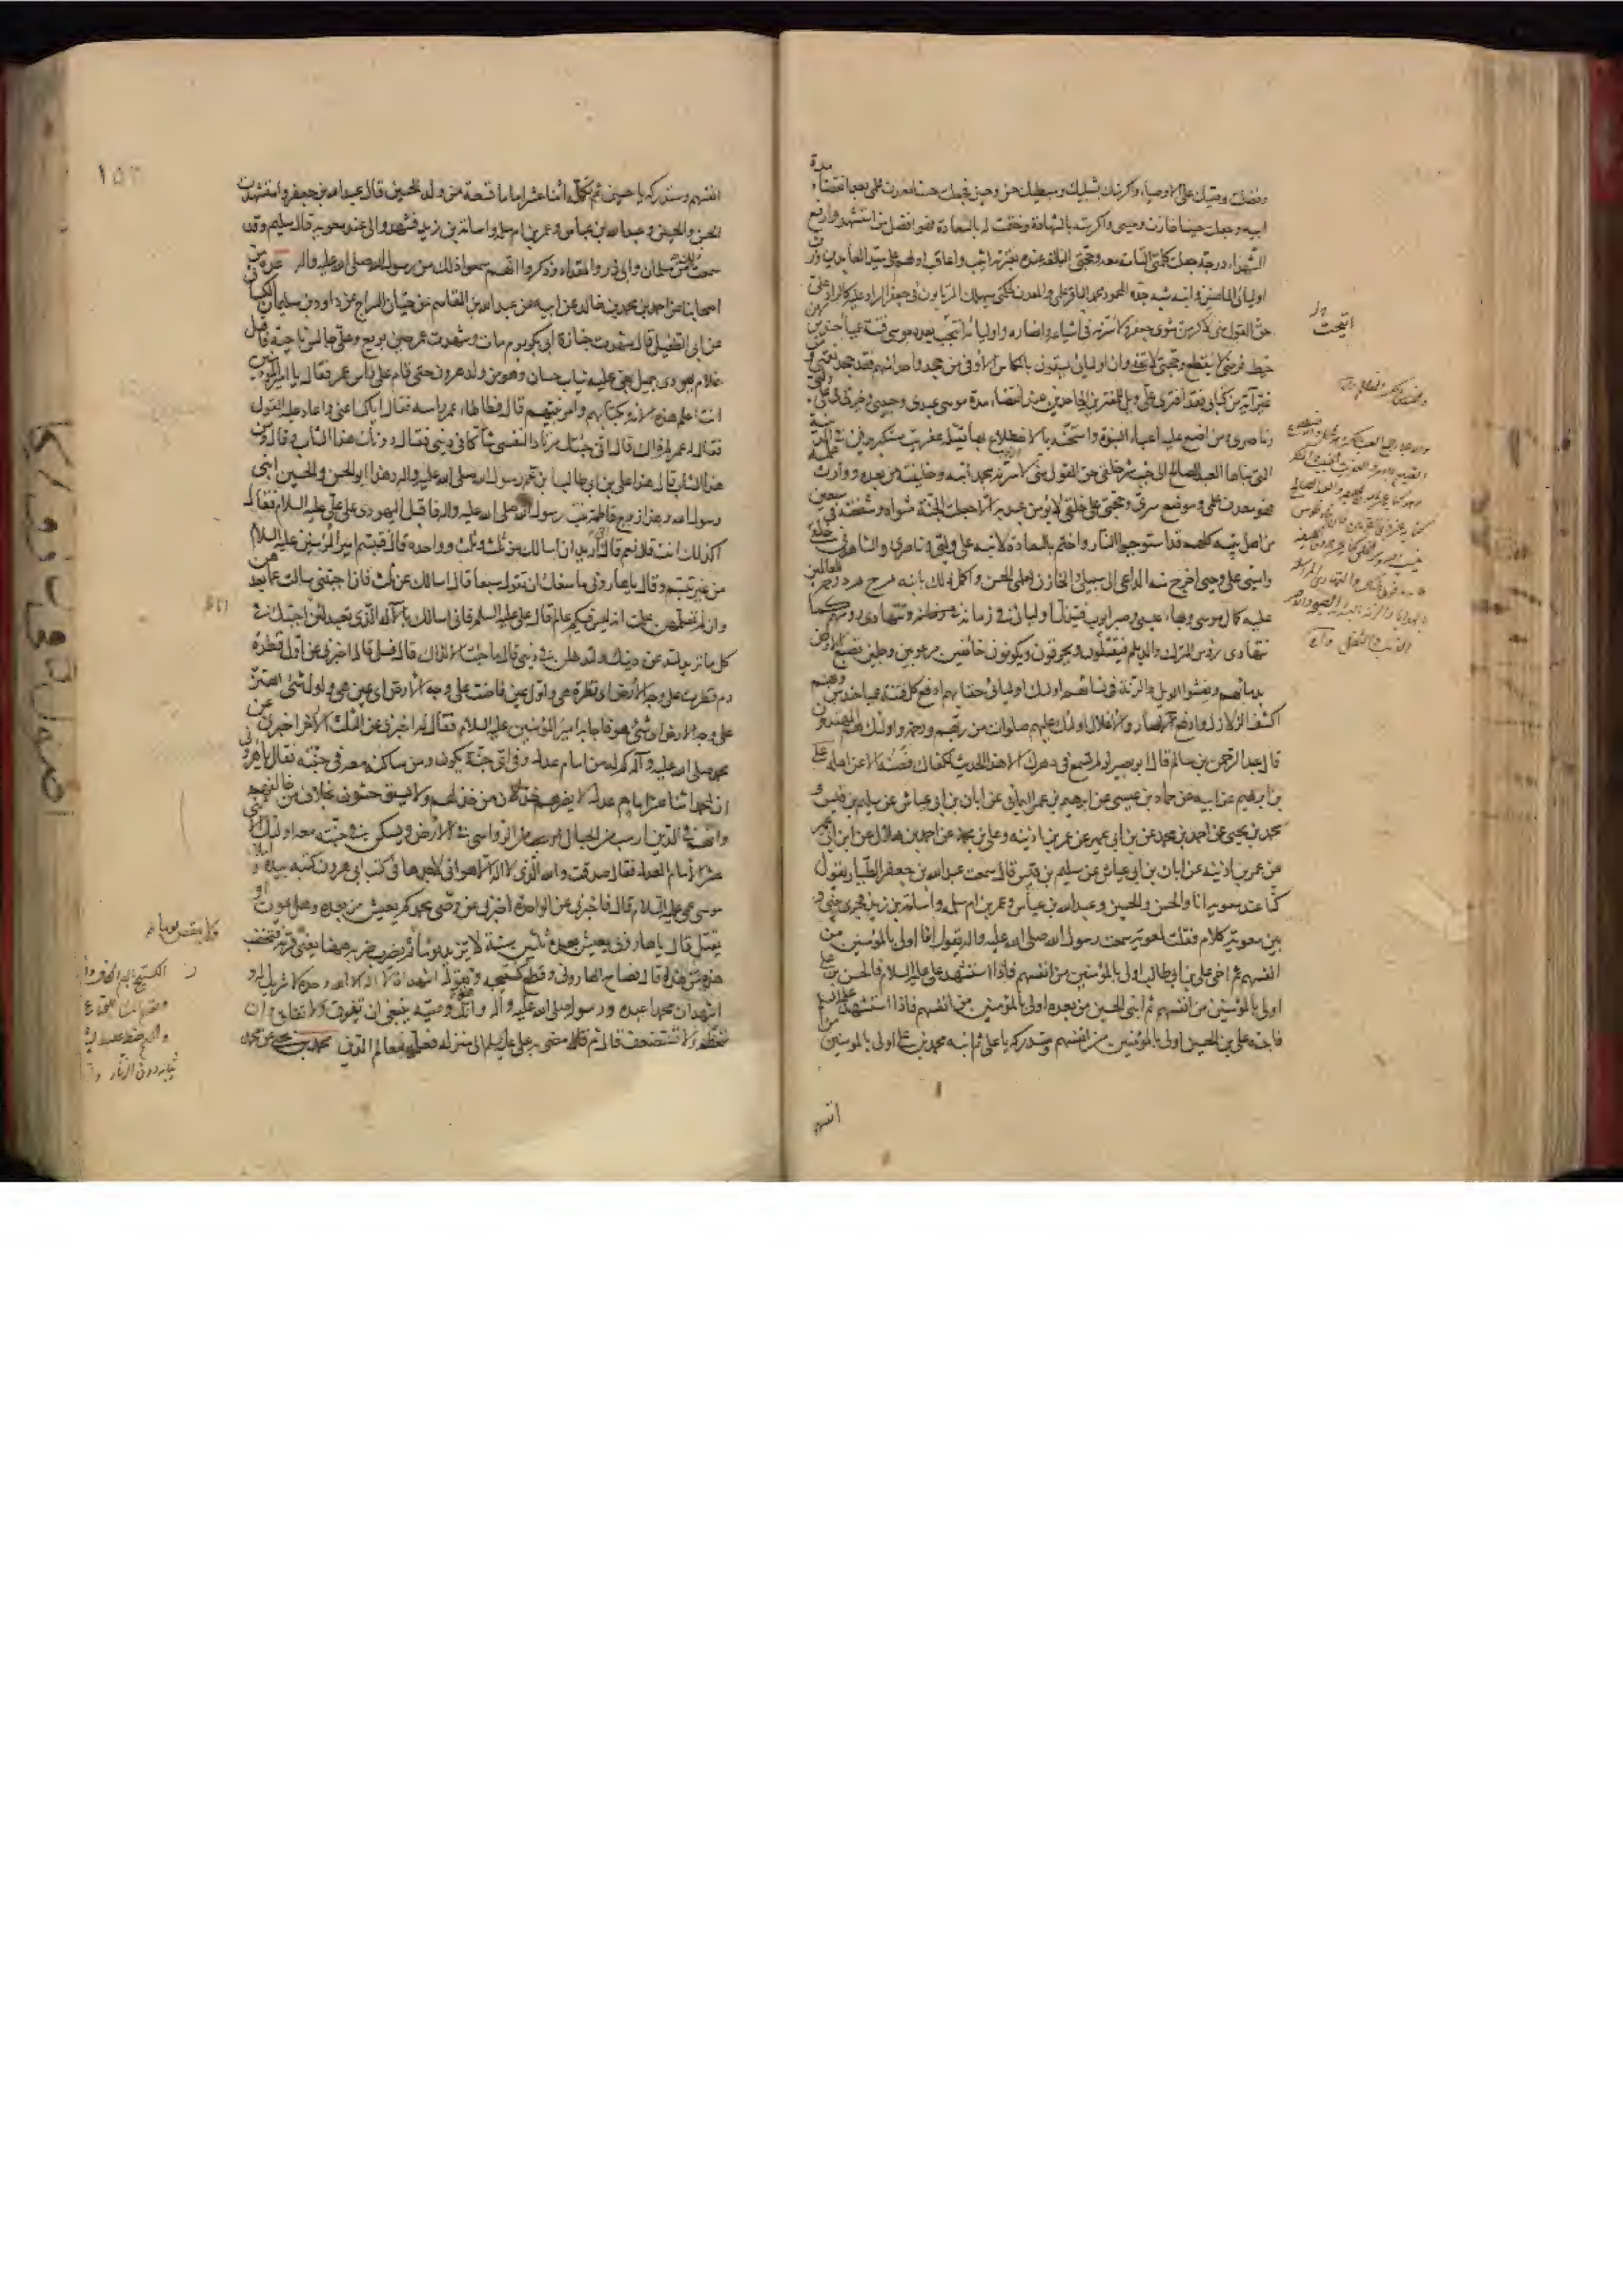 وفضلت وصيك على الاوصياء واكرمتك بشبليك وسبطيك حسن وحسين فجعلت حسنا معدن علمي بعد انقضاء مدة
ابيه وجعلت حسينا خازن وحيي واكرمته بالشهادة وختمت له بالسعادة فهو افضل من استشهد وارفع
الشهداء درجة جعلت كلمتي التامة معه وحجتي البالغة عنده بعترته اثيب واعاقب اولهم علي سيد العابدين وزين
اوليائي الماضين وابنه شبه جده المحمود محمد الباقر علمي والمعدن لحكمتي سيهلك المرتابون في جعفر الراد عليه كالراد علي
حق القول مني لاكرمن مثوى جعفر ولاسرنه في اشياعه وانصاره واوليائه انتجب بعده موسى فتنة عمياء حندس لان
خيط فرضي لا ينقطع وحجتي لا تخفى وان اوليائي يسقون بالكاس الاوفى من جحد واحدا منهم فقد جحد نعمتي ومن
غير آية من كتابي فقد افترى علي ويل للمفترين الجاحدين عند انقضاء مدة موسى عبدي وحبيبي وخيرتي في علي وليي
وناصري ومن اضع عليه اعباء النبوة وامتحنه بالاضطلاع بها يقتله عفريت مستكبر يدفن في المدينة
التي بناها العبد الصالح الى جنب شر خلقي حق القول مني لاسرنه بمحمد ابنه وخليفته من بعده ووارث علمه
فهو معدن علمي وموضع سري وحجتي على خلقي لا يؤمن عبد به الا جعلت الجنة مثواه وشفعته في سبعين
من اهل بيته كلهم قد استوجبوا النار واختم بالسعادة لابنه علي وليي وناصري والشاهد في خلقي
واميني على وحيي اخرج منه الداعي الى سبيلي والخازن لعلمي الحسن واكمل ذلك بابنه م ح م د رحمة للعالمين
عليه كمال موسى وبهاء عيسى وصبر ايوب فيذل اوليائي في زمانه وتتهادى رؤسهم كما
تتهادى رؤس الترك والديلم فيقتلون ويحرقون ويكونون خائفين مرعوبين وجلين تصبغ الارض
بدمائهم ويفشو الويل والرنة في نسائهم اولئك اوليائي حقا بهم ادفع كل فتنة عمياء حندس وبهم
اكشف الزلازل وادفع الآصار والاغلال اولئك عليهم صلوات من ربهم ورحمة واولئك هم المهتدون
قال عبد الرحمن بن سالم قال ابو بصير لو لم تسمع في دهرك الا هذا الحديث لكفاك فصنه الا عن اهله علي
بن ابرهيم عن ابيه عن حماد بن عيسى عن ابرهيم بن عمر اليماني عن ابان بن ابي عياش عن سليم بن قيس و
محمد بن يحيى عن احمد بن محمد عن ابن ابي عمير عن عمر بن اذينه وعلي بن محمد عن احمد بن هلال عن ابن ابي عمير
عن عمر بن اذينه عن ابان بن ابي عياش عن سليم بن قيس قال سمعت عبد الله بن جعفر الطيار يقول
كنا عند معوية انا والحسن والحسين وعبد الله بن عباس وعمر بن ام سلمه واسامة بن زيد فجرى بيني و
بين معوية كلام فقلت لمعوية سمعت رسول الله صلى الله عليه واله يقول انا اولى بالمؤمنين من
انفسهم ثم اخي علي بن ابي طالب اولى بالمؤمنين من انفسهم فاذا استشهد علي عليه السلام فالحسن بن علي
اولى بالمؤمنين من انفسهم ثم ابني الحسين من بعده اولى بالمؤمنين من انفسهم فاذا استشهد
فابنه علي بن الحسين اولى بالمؤمنين من انفسهم وستدركه يا علي ثم ابنه محمد بن علي اولى بالمؤمنين من
انفسهم
انتجبت
١٥٣
انفسهم وستدركه يا حسين ثم تكمله اثنا عشر اماما تسعة من ولد الحسين قال عبد الله بن جعفر واستشهدت
الحسن والحسين وعبد الله بن عباس وعمر بن ام سلمه واسامة بن زيد فشهدوا لي عند معوية قال سليم وقد
سمعت ذلك من سلمان وابي ذر والمقداد وذكروا انهم سمعوا ذلك من رسول الله صلى الله عليه واله عدة من
اصحابنا عن احمد بن محمد بن خالد عن ابيه عن عبد الله بن القاسم عن حيان السراج عن داود بن سليمان الكسائي
عن ابي الطفيل قال شهدت جنازة ابي بكر يوم مات وشهدت عمر حين بويع وعلي جالس ناحية فاقبل
غلام يهودي جميل عليه ثياب حسان وهو من ولد هرون حتى قام على راس عمر فقال يا امير المؤمنين
انت اعلم هذه الامة بكتابهم وامر نبيهم قال فطاطا عمر راسه فقال اياك اعني واعاد عليه القول
فقال له عمر لم ذاك قال اني جئتك مرتاد النفسي شاكا في ديني فقال دونك هذا الشاب قال ومن
هذا الشاب قال هذا علي بن ابي طالب ابن عم رسول الله صلى الله عليه واله وهذا ابو الحسن والحسين ابني
رسول الله وهذا زوج فاطمة بنت رسول الله صلى الله عليه واله فاقبل اليهودي على علي عليه السلام فقال
اكذلك انت قال نعم قال اني اريد ان اسالك عن ثلث وثلث وواحده قال فتبسم امير المؤمنين عليه السلام
من غير تبسم وقال يا هاروني ما منعك ان تقول سبعا قال اسالك عن ثلث فان اجبتني سالت عما بعدهن
وان لم تعلمهن علمت انه ليس فيكم عالم قال علي عليه السلم فاني اسالك بالاله الذي تعبده لئن اجبتك في
كل ما تريد لتدعن دينك ولتدخلن في ديني قال ما جئت الا لذاك قال فسل قال اخبرني عن اول قطرة
دم قطرت على وجه الارض اي قطرة هي واول عين فاضت على وجه الارض اي عين هي واول شئ اهتز
على وجه الارض اي شئ هو فاجابه امير المؤمنين عليه السلام فقال له اخبرني عن الثلث الاخر اخبرني عن
محمد صلى الله عليه وآله كم له من امام عدل وفي اي جنة يكون ومن ساكنه معه في جنته فقال يا هاروني
ان لمحمد اثنا عشر امام عدل لا يضرهم خذلان من خذلهم ولا يستوحشون بخلاف من خالفهم
وانهم في الدين ارسب من الجبال الرواسي في الارض ويسكن في جنته معه اولئك
عشر الامام العدل فقال صدقت والله الذي لا اله الا هو اني لاجدها في كتب ابي هرون كتبه بيده واملاء
موسى عمي عليه السلام قال فاخبرني عن الواحدة اخبرني عن وصي محمد كم يعيش من بعده وهل يموت او
يقتل قال يا هاروني يعيش بعده ثلثين سنة لا تزيد يوما ثم يضرب ضربة هيهنا يعني قرنه فتخضب
هذه من هذه قال فصاح الهاروني وقطع كستيجه وهو يقول اشهد ان لا اله الا الله وحده لا شريك له و
اشهد ان محمدا عبده ورسوله صلى الله عليه واله وانك وصيه ينبغي ان تفوق ولا تفاق وان
تعظم ولا تستضعف قال ثم مضى به علي عليه السلم الى منزله فعلمه معالم الدين محمد بن يحيى عن محمد
ولا ينقص يوما